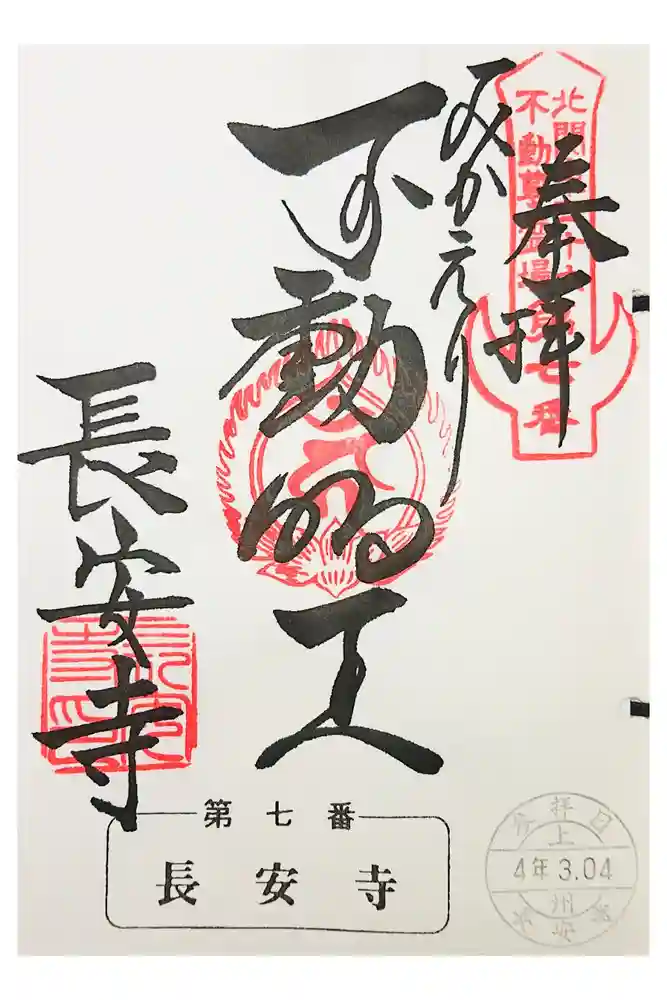 奉拝
北関東三十六
不動尊霊場第七番
みかえり
不動明王
長安寺
第七番
長安寺
参拝日
上州
4年 3.04
長安寺